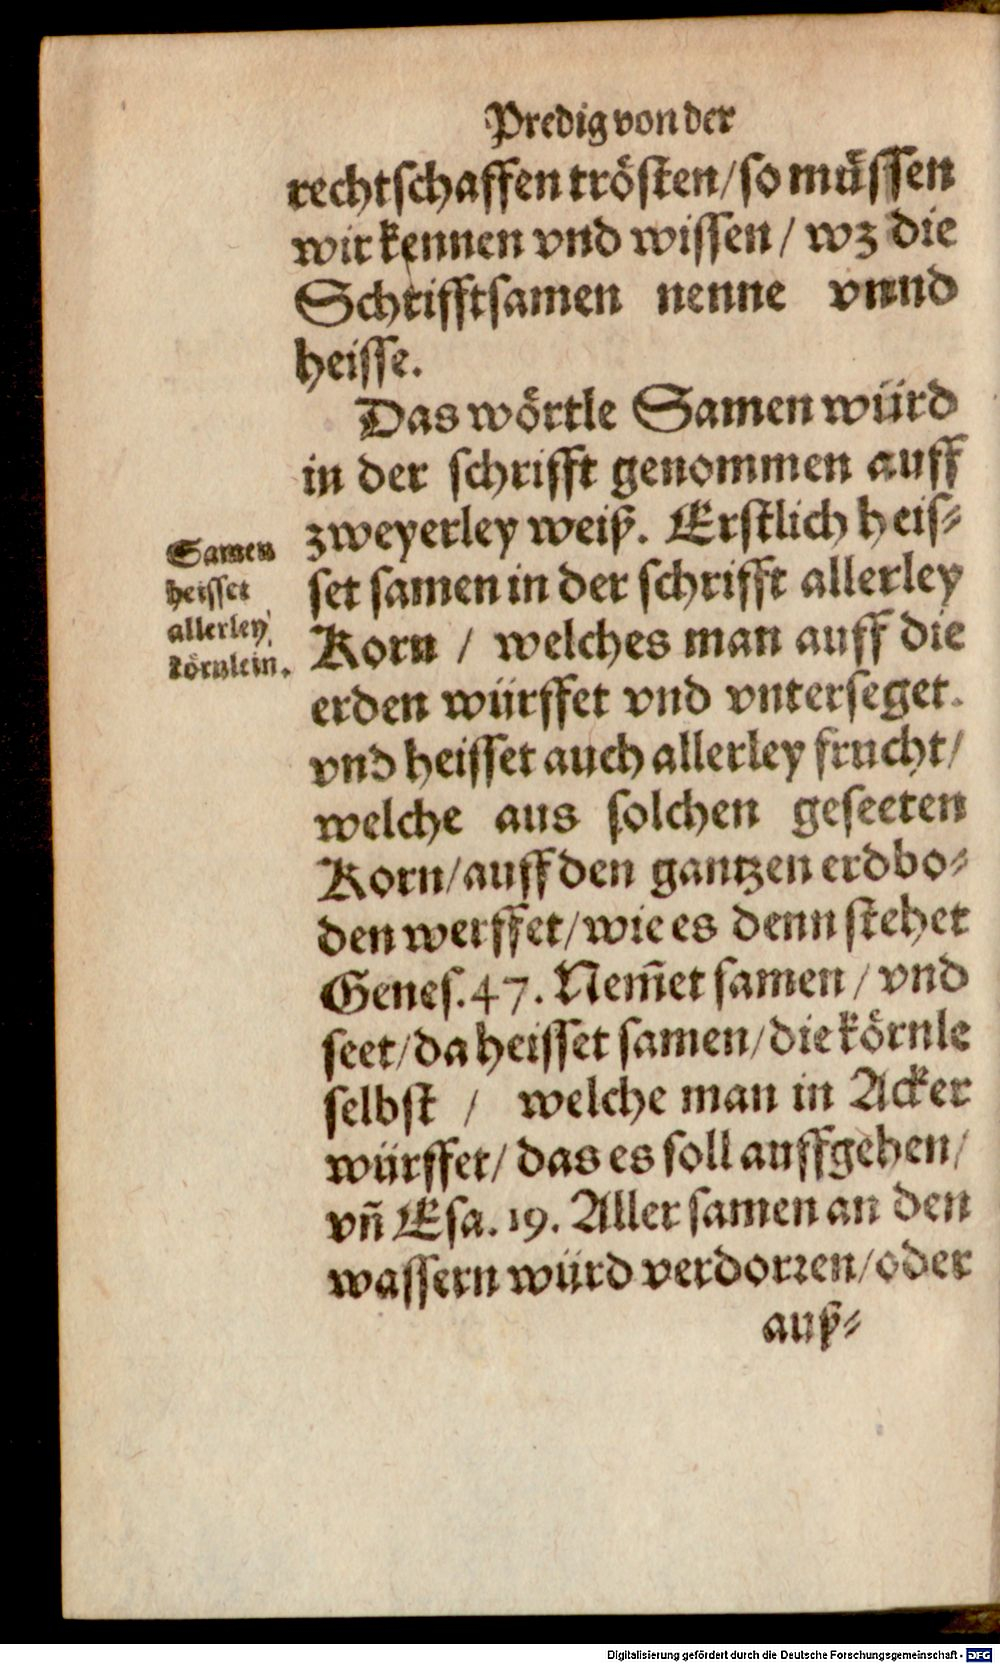 Predig von der
rechtschaffen trösten/ so müssen
wir kennen vnd wissen/ wz die
Schrifftsamen nenne vnnd
heisse.
Das wörtle Samen würd
in der schrifft genommen auff
zweyerley weiß. Erstlich heis-
set samen in der schrifft allerley
Korn / welches man auff die
erden würffet vnd vnterseget.
vnd heisset auch allerley frucht/
welche aus solchen geseeten
Korn/ auff den gantzen erdbo-
den werffet/ wie es denn stehet
Genes. 47. Nem̃et samen/ vnd
seet/ da heisset samen/ die körnle
selbst / welche man in Acker
würffet/ das es soll auffgehen/
vñ Esa. 19. Aller samen an den
wassern würd verdorren/ oder
auß-
Samen
heisset
allerley
körnlein.
Digitalisierung gefördert durch die Deutsche Forschungsgemeinschaft - DFG